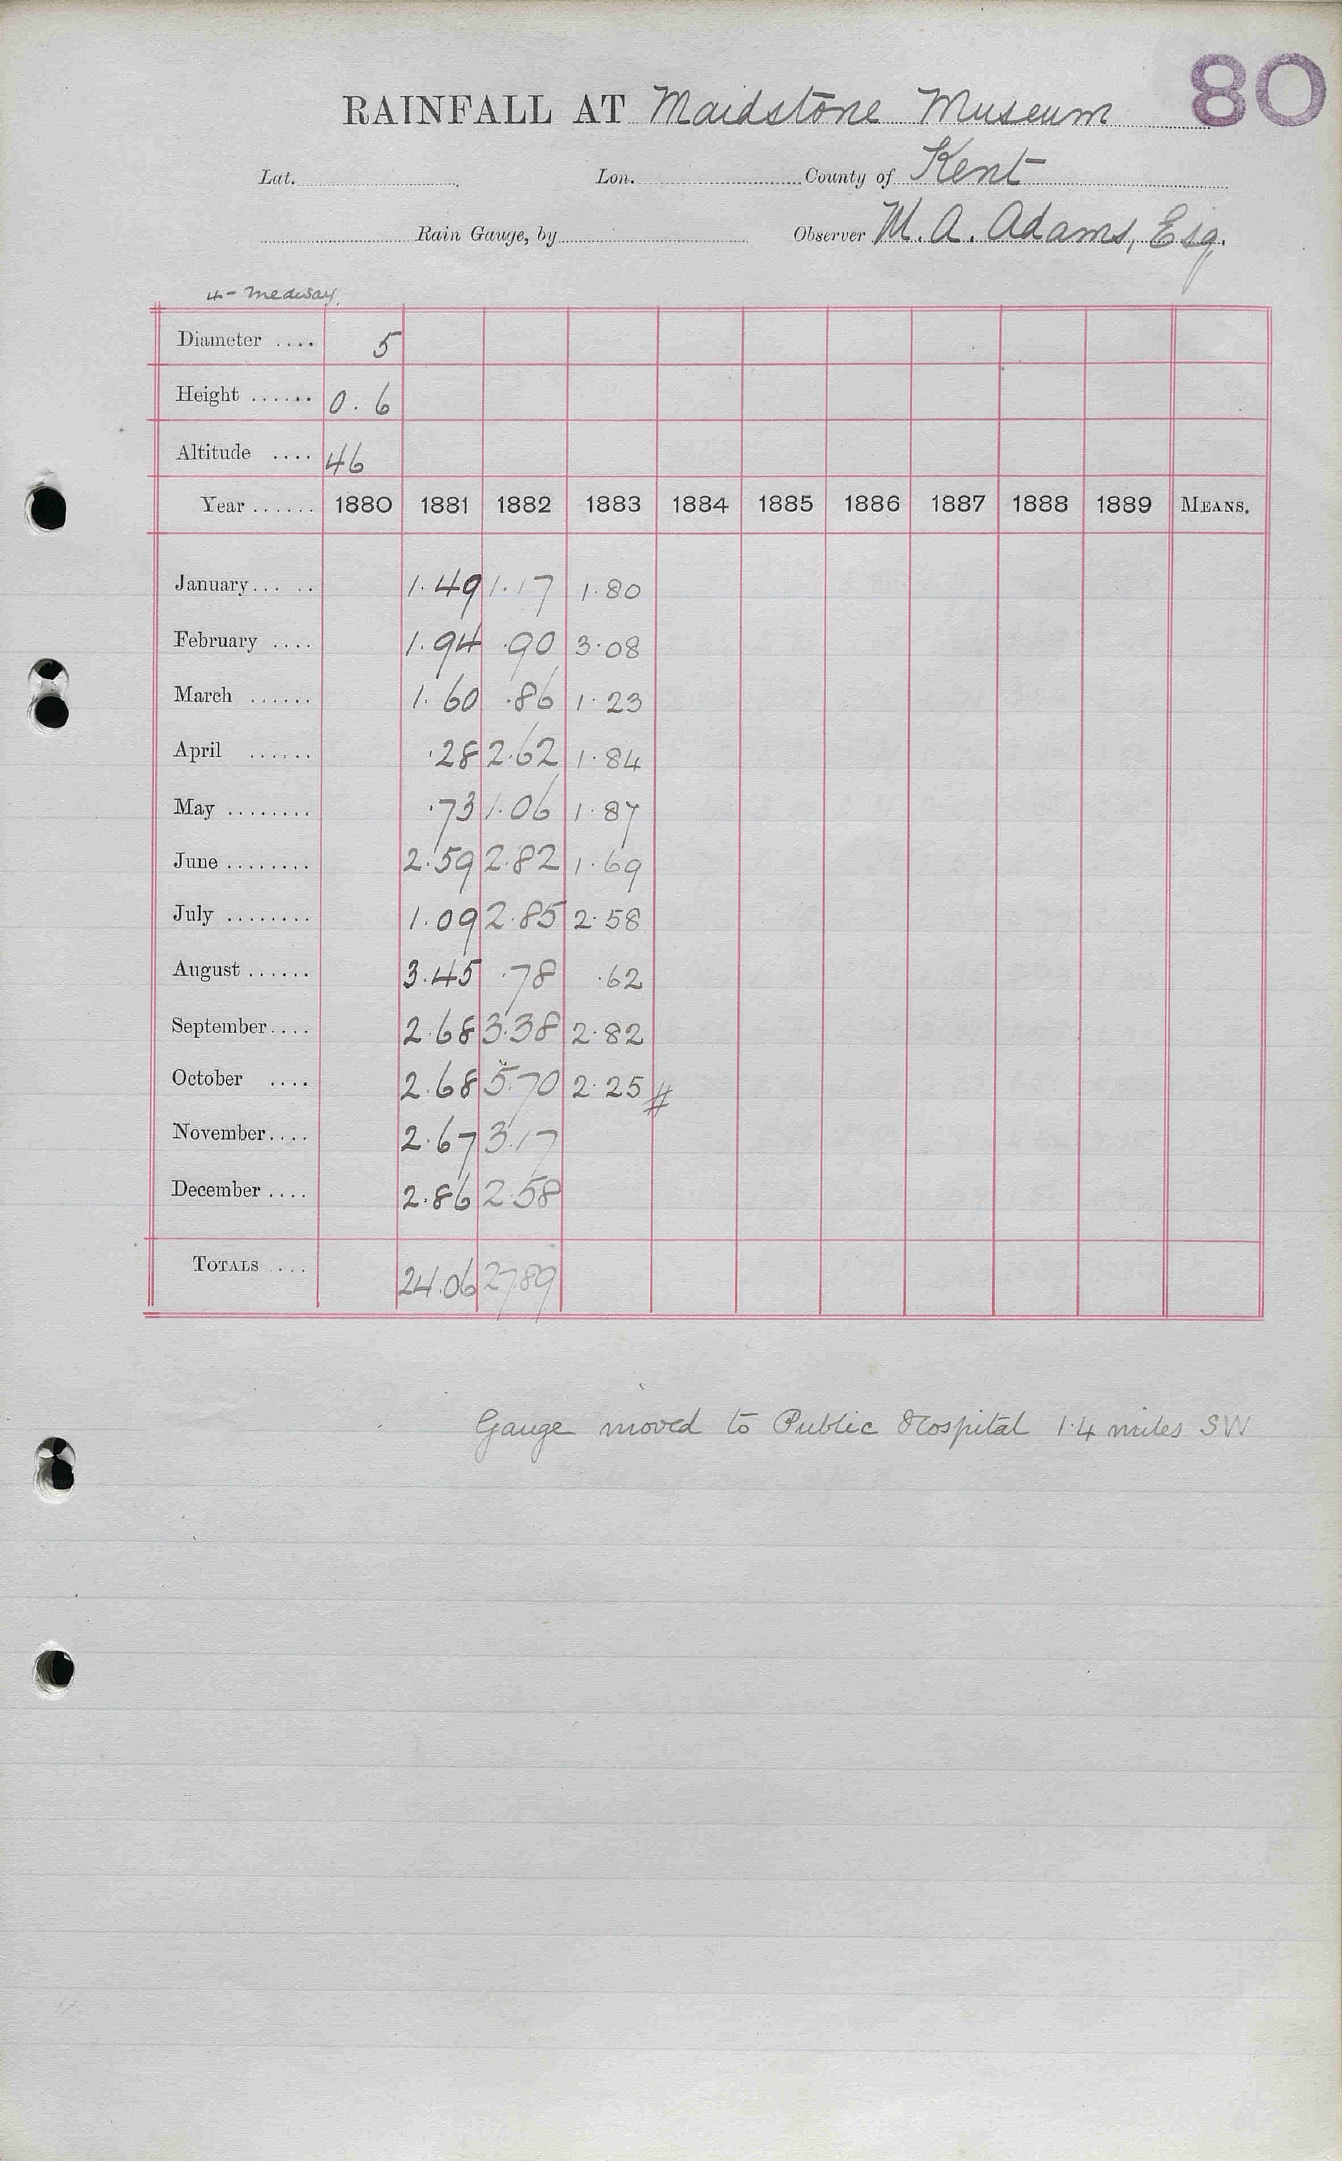 80
RAINFALL AT Maidstone Museum
Lat. Lon. County of Kent
Rain Gauge, by Observer M. A. Adams, Esq.
4 - Medway.
Diameter .... 5
Height ...... 0.6
Altitude .... 46
Year ...... 1880 1881 1882 1883 1884 1885 1886 1887 1888 1889 MEANS.
January ..... 1.49 1.17 1.80
February .... 1.94 .90 3.08
March ...... 1.60 .86 1.23
April ...... .28 2.62 1.84
May ........ .73 1.06 1.87
June ........ 2.59 2.82 1.69
July ........ 1.09 2.85 2.58
August ...... 3.45 .78 .62
September.... 2.68 3.38 2.82
October .... 2.68 5.70 2.25 #
November.... 2.67 3.17
December .... 2.86 2.58
TOTALS .... 24.06 27.89
Gauge moved to Public Hospital 1.4 miles SW